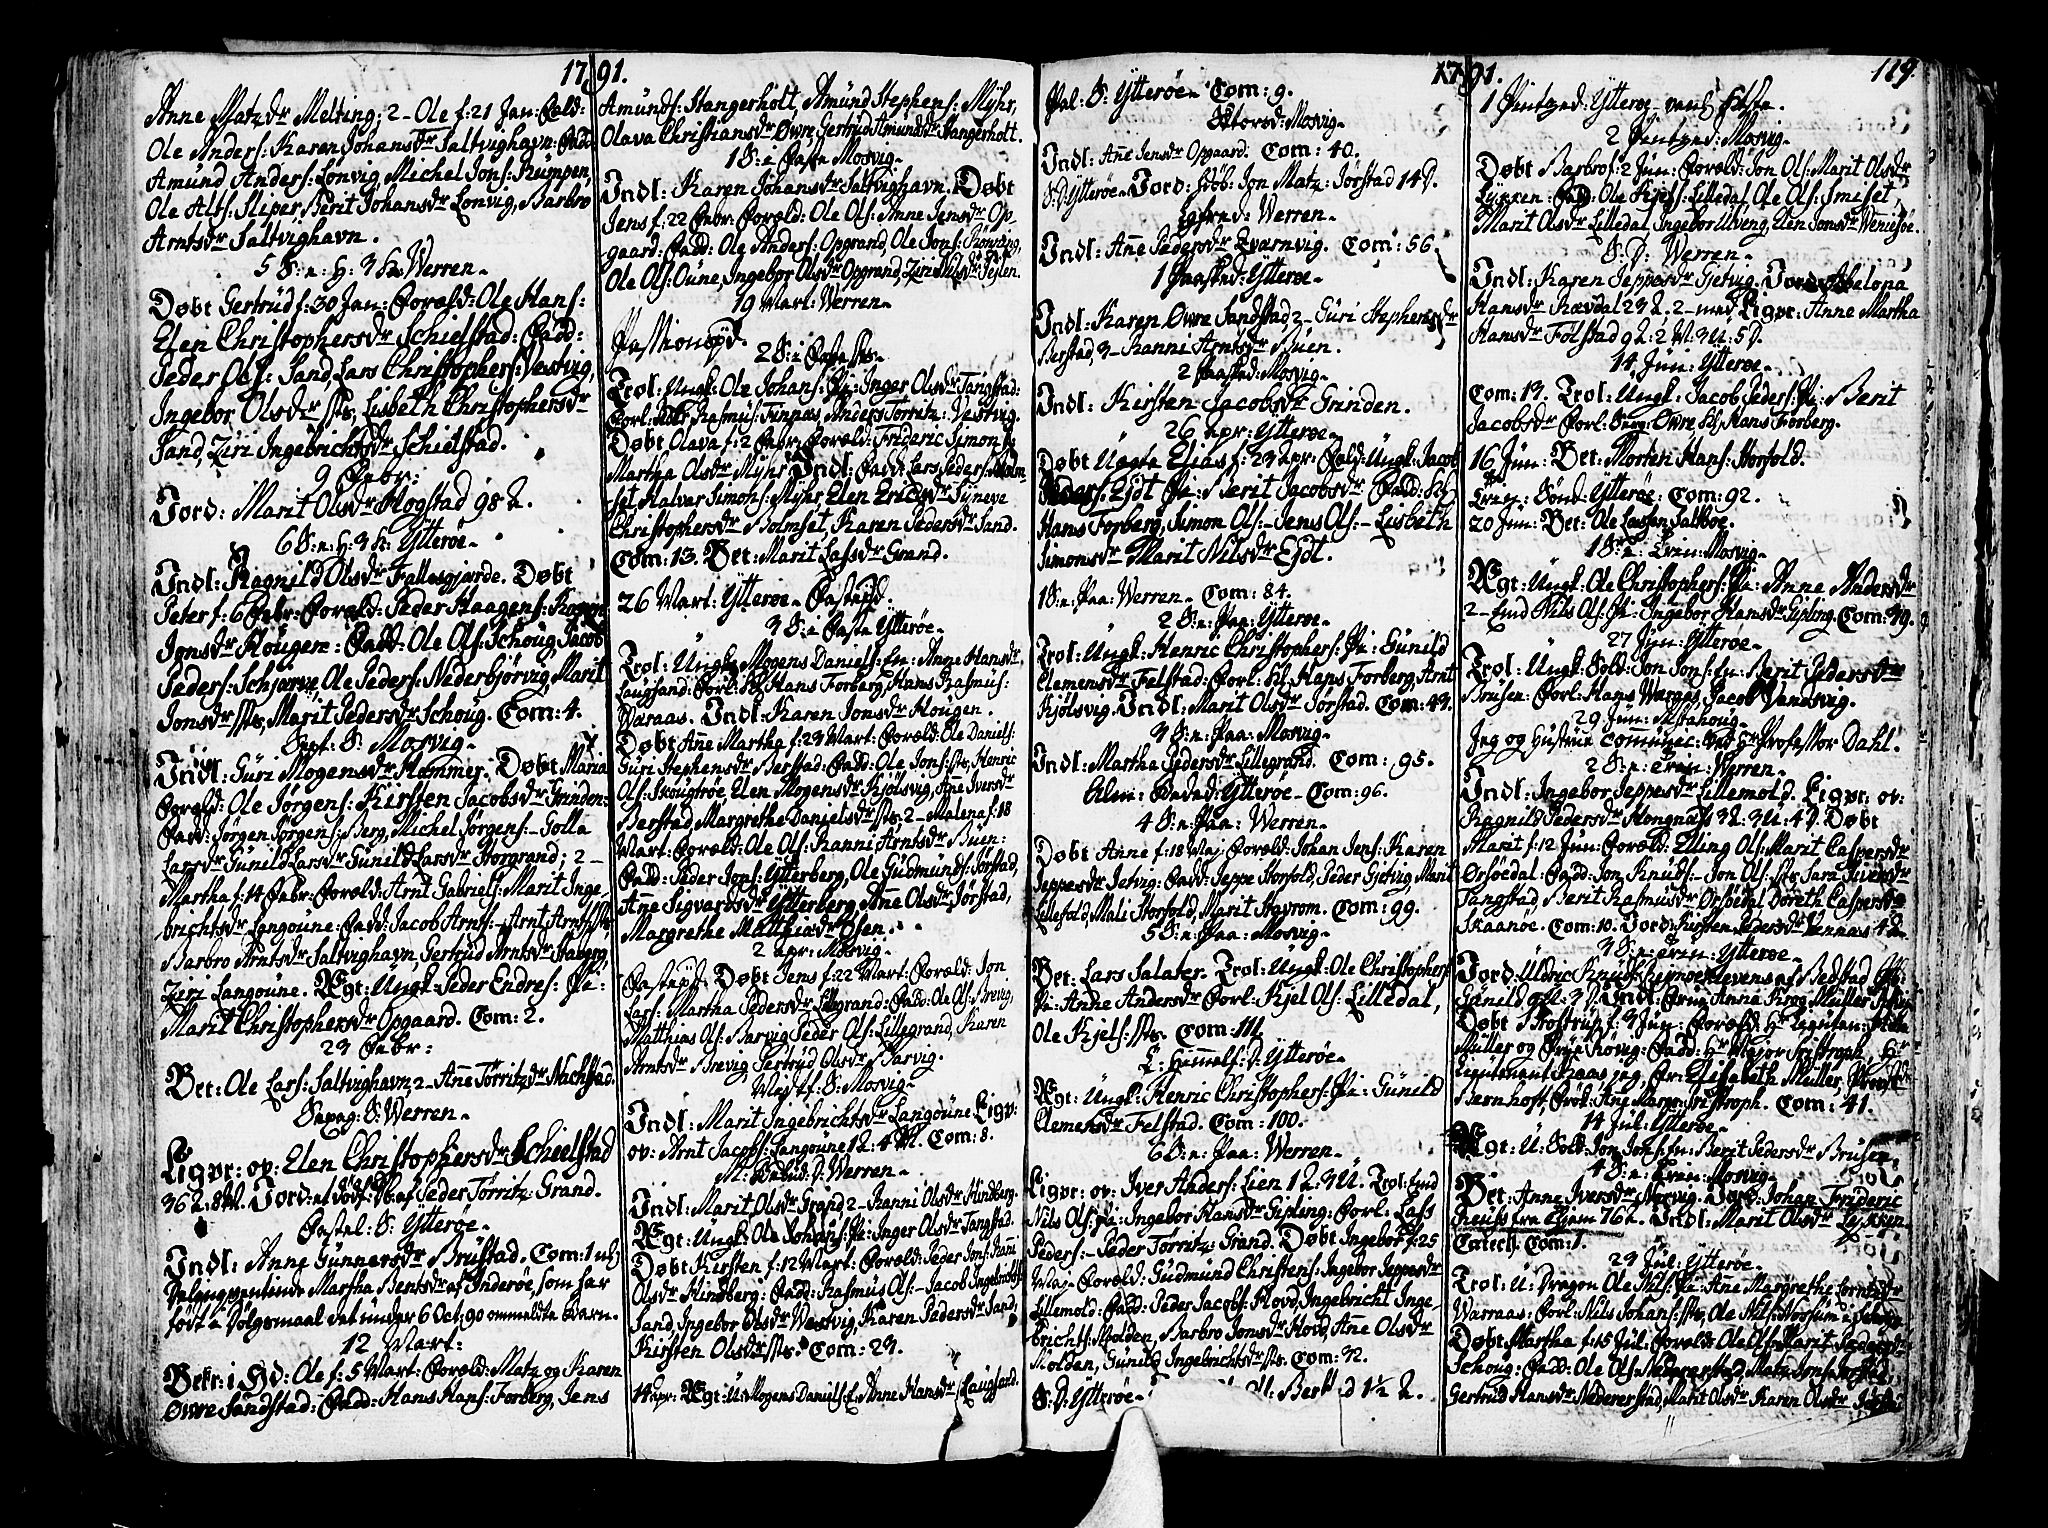 1791.
Anne Matzdr Melting; 2 - Ole f: 21 Jan: Foræld:
Ole Anders: Karen Johansdr Saltvighavn: Fadd:
Amund Anders: Lonvig, Michel Jons: Kumpen,
Ole Alts: Sleper, Berit Johansdr Lonvig, Barbro
Arntsdr Saltvighavn.
5 S: n: H: 3 K: Werren -
Døbt Gertrud f: 30 Jan: Foræld: Ole Hans:
Elen Christophersdr Schielstad: Fadd:
Peder Ols: Sand, Lars Christophers: Vestvig,
Ingebor Olsdr sts, Lisbeth Christophersdr
Sand, Ziri Ingebrichtsdr Schielstad.
9 Febr:
Jord: Marit Olsdr Hogstad 98 A.
6 S: n: H: 3 K: Ytterøe -
Indl: Ragnild Olsdr Fallesgjærde. Døbt
Peter f: 6 Febr: Foræld: Peder Haagens:
Jonsdr Hougen: Fadd: Ole Ols: Schoug, Jacob
Peders: Schjærve, Ole Peders: Nederbjørvig, Marit
Jonsdr sts, Marit Pedersdr Schoug. Com: 4.
Sept: S: Mosvig -
Indl: Guri Mogensdr Hammer. Døbt Maria
Foræld: Ole Jørgens: Kirsten Jacobsdr Grinden:
Fadd: Jørgen Jørgens: Berg, Michel Jørgens: - Golla
Larsdr Gunild Larsdr Gunild Larsdr Storgrand; 2 -
Martha f: 14 Febr: Foræld: Arnt Gabriels: Marit Inge-
brichtsdr Langoune: Fadd: Jacob Arnts - Arnt Arnts sts
Barbro Arntsdr Saltvighavn, Gertrud Arntsdr Staberg,
Ziri Langoune. Ægt: Ungk: Peder Endres: Pi:
Marit Christophersdr Opgaard. Com: 2.
23 Febr:
Bet: Ole Lars: Saltvighavn, 2 - Anne Torritzdr Nachstad.
Sexag: S: Werren -
Ligpr: ov: Elen Christophersdr Schielstad
36 A: 8 M. Jord: Peder Torritz: Grand.
Fastel: S: Ytterøe -
Indl: Anne Gunnersdr Brustad. Com: 1
Martha Bentsdr af Inderøe, som har
født i Dølgsmaal det under 6 Oct: 90 ommeldte Barn.
12 Mart:
Bekr: i Hd: Ole f: 5 Mart: Foræld: Matz og Karen
Øvre Sandstad: Fadd: Hans Hans: Forberg, Jens
Amunds: Stangerholt, Amund Stephens: Myhr,
Olava Christiansdr Øvre, Gertrud Amundsdr Stangerholt.
1 S: i Faste Mosvig -
Indl: Karen Johansdr Saltvighavn. Døbt
Jens f: 22 Febr: Foræld: Ole Ols: Anne Jensdr Op-
gaard: Fadd: Ole Anders: Opgrand, Ole Jons: Rønning,
Ole Ols: Oune, Ingebor Olsdr Opgrand, Ziri Nilsdr Tejlen.
19 Mart: Werren -
Passionspd.
2 S: i Faste sts -
Trol: Ungk: Ole Johans: Pi: Inger Olsdr Tangstad:
Forl: Peder Rasmus: Finnaas, Anders Torritz: Vestvig.
Døbt Olava f: 2 Febr: Foræld: Frideric Simons:
Martha Olsdr Myhr Indl: Fadd: Lars Peders: Holm-
set, Halvor Simons: Myhr Elen Ericsdr Synevе
Christophersdr Holmset, Karen Pedersdr Sand.
Com: 13. Bet: Marit Larsdr Grand.
26 Mart: Ytterøe - Fastepd:
3 S: i Faste Ytterøe -
Trol: Ungk: Mogens Daniels: En: Anne Hansdr
Laugsand: Forl: Kl: Hans Forberg, Hans Rasmus:
Waraas. Indl: Karen Jonsdr Hougen.
Døbt Anne Martha f: 23 Mart: Foræld: Ole Daniels:
Guri Stephensdr Berstad: Fadd: Ole Jons: sts, Henric
Ols: Skougtrøe Elen Mogensdr Kjølsvig, Anne Iversdr
Berstad, Margrethe Danielsdr sts: 2 - Malena f: 18
Mart: Foræld: Ole Ols: Ranni Arntsdr Buen:
Fadd: Peder Jons: Ytterberg, Ole Gudmunds: Jørstad,
Ane Sigvardsdr Ytterberg, Ane Olsdr Jørstad,
Margrethe Matthiasdr Essen.
2 Apr: Mosvig -
Fastepd: Døbt Jens f: 22 Mart: Foræld: Jon
Lars: Martha Pedersdr Lillegrand: Fadd: Ole Ols: Brevig,
Matthias Ols: Barvig Peder Ols: Lillegrand, Karen
Arntsdr Brevig Gertrud Olsdr Barvig.
Midf: S: Mosvig -
Indl: Marit Ingebrichtsdr Langoune Ligpr:
ov: Arnt Jacobs: Langoune 1 A: 4 M. Com: 8.
M: Bebud: D: Werren -
Indl: Marit Olsdr Grand, 2 - Ranni Olsdr Hindberg.
Ægt: Ungk: Ole Johans: Pi: Inger Olsdr Tangstad.
Døbt Kirsten f: 12 Mart: Foræld: Peder Jons: Ranni
Olsdr Hindberg: Fadd: Rasmus Ols: - Jacob Ingebrichts:
Sand, Ingebor Olsdr Westvig, Karen Pedersdr Sand,
Kirsten Olsdr sts. Com: 23.
14 Apr: Ægt: U: Mogens Daniels: f: Anne Hansdr Laugsand.
1791.
Pal: S: Ytterøe - Com: 9.
Skiersd: Mosvig -
Indl: Anne Jensdr Opgaard. Com: 40.
S: D: Ytterøe - Jord: Døb: Jon Matz: Jørstad 14 D.
Lgfred: Werren -
Indl: Anne Pedersdr Kværnvig. Com: 56.
1 Paasked: Ytterøe -
Indl: Karen Øvre Sandstad, 2 - Guri Stephensdr
Berstad, 3 - Ranni Arntsdr Buen.
2 Paasked: Mosvig -
Indl: Kirsten Jacobsdr Grinden.
26 Apr: Ytterøe -
Døbt Uægta Elias f: 23 Apr: Foræld: Ungk: Jacob
Peders: Ejdt Pi: Berit Jacobsdr Fadd: Kl:
Hans Forberg, Simon Ols: - Jens Ols: - Lisbeth
Simonsdr Marit Nilsdr Ejdt.
1 S: n: Paa: Werren - Com: 84.
2 S: n: Paa: Ytterøe -
Trol: Ungk: Henric Christophers: Pi: Gunild
Clemensdr Felstad: Forl: Kl: Hans Forberg, Arnt
Kjølsvig. Indl: Marit Olsdr Jørstad. Com: 43.
3 S: n: Paa: Mosvig -
Indl: Martha Pedersdr Lillegrand. Com: 95.
Alm: Beded: Ytterøe - Com: 96.
4 S: n: Paa: Werren -
Døbt Anne f: 18 Maj: Foræld: Johan Jens: Karen
Jeppesdr Jetvig: Fadd: Jeppe Storfold, Peder Gjetvig, Marit
Lillefold, Mali Storfold, Marit Stavrom. Com: 99.
5 S: n: Paa: Mosvig -
Bet: Lars Salater. Trol: Ungk: Ole Christophers:
Pi: Anne Andersdr Forl: Kjel Ols: Lilledal,
Ole Kjels: sts. Com: 111.
X: Himmelf: D: Ytterøe -
Ægt: Ungk: Henric Christophers: Pi: Gunild
Clemensdr Felstad. Com: 100.
6 S: n: Paa: Werren -
Ligpr: ov: Iver Anders: Lien 1 A: 3 U. Trol: Emd
Nils Ols: Pi: Ingebor Hansdr Gipling: Forl: Lars
Peders: - Peder Torritz: Grand. Døbt Ingebor f: 25
Maj - Foræld: Gudmund Christens: Ingebor Jeppesdr
Lillemold: Fadd: Peder Jacobs: Hovd, Ingebricht Inge-
brichts: Molden, Barbro Jonsdr Hovd, Anne Olsdr
Molden, Gunild Ingebrichtsdr sts. Com: 32.
S: D: Ytterøe - Ols: Berstad 1½ A.
1791. 119.
1 Pintzed: Ytterøe -
2 Pintzed: Mosvig -
Døbt Barbro f: 2 Jun: Foræld: Jon Ols: Marit Olsdr
Lykken: Fadd: Ole Kjels: Lilledal, Ole Ols: Smiset,
Marit Olsdr Lilledal, Ingebor Ulveng, Elen Jonsdr Wennesøe.
S: D: Werren -
Indl: Karen Jeppesdr Gjetvig. Jord: Abelona
Hansdr Rævdal 23 A. 2 - med Ligpr: Anne Martha
Hansdr Folstad 9 A: 2 M: 3 U: 5 D.
14 Jun: Ytterøe -
Com: 13. Trol: Ungk: Jacob Peders: Pi: Berit
Jacobsdr Forl: Berg: Øvre Kl: Hans Forberg.
16 Jun: Bet: Morten Hans: Storfold.
Trin: Sønd: Ytterøe: Com: 92.
20 Jun: Bet: Ole Larsen Saltboe.
1 S: n: Trin: Mosvig -
Ægt: Ungk: Ole Christophers: Pi: Anne Andersdr
2 - Emd Nils Ols: Pi: Ingebor Hansdr Gipling. Com: 39.
27 Jun: Ytterøe -
Trol: Ungk: Sold: Jon Jons: En: Berit Pedersdr
Brusen: Forl: Hans Wærgas, Jacob Vandsvig.
29 Jun: Alstahoug -
Jeg og Hustrue communic: ved Hr Professor Dahl.
2 S: n: Trin: Werren -
Indl: Ingebor Jeppesdr Lillemold. Ligpr: ov:
Ragnild Pedersdr Hongnæs 3 A: 3 U: 4 D. Døbt
Marit f: 12 Jun: Foræld: Elling Ols: Marit Caspersdr
Ørsøedal: Fadd: Jon Knuds: - Jon Ols: sts Sara Siversdr
Tangstad, Berit Rasmusdr Orsøedal Doreth Caspersdr
Skaanøe. Com: 10. Jord: Kirsten Pedersdr Vennaas 4 A.
3 S: n: Trin: Ytterøe -
Jord: Uldric Knuds: Hermoe af Bedstad
Gunild 9 A: 3 D. Indl: Frue Anna Krog Müller
Døbt Brostrup f: 3 Jun: Foræld: Hr Lieutenant
Müller og Frue Rovig: Fadd: Hr Major Tristroph, Hr
Lieutenant Kaas jeg, Fr: Elisabeth Müller,
Bernhoft, Frøk: Ane Margr: Tristroph. Com: 41.
14 Jul: Ytterøe -
Ægt: U: Sold: Jon Jons: En: Berit Pedersdr Brusen.
4 S: n: Trin: Mosvig -
Bet: Anne Iversdr Morvig. Jord: Johan Frideric
Reuss fra Tjem 76 A. Indl: Marit Olsdr Lykken.
Catech. Com: 1.
23 Jul: Ytterøe -
Trol: U: Dragon Ole Nils: Pi: Anne Margrethe
Warraas: Forl: Nils Johans: sts, Ole Nils:
Døbt Martha f: 15 Jul: Foræld: Ole Ols: Marit Pedersdr
Schoug: Fadd: Ole Ols: Nedererstad, Matz Jons: Jørstad,
Gertrud Hansdr Nedererstad, Marit Olsdr Karen Olsdr